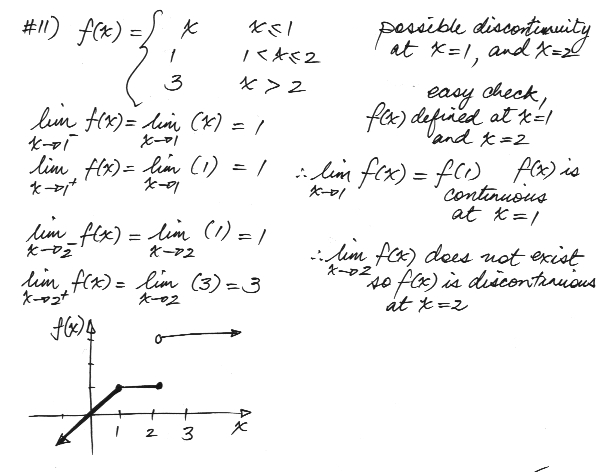 #11) f(x) = { x    x≤1
1    1<x≤2
3    x>2
possible discontinuity
at x=1, and x=2
easy check,
f(x) defined at x=1
and x=2
lim x→1⁻ f(x) = lim x→1 (x) = 1
lim x→1⁺ f(x) = lim x→1 (1) = 1
∴ lim x→1 f(x) = f(1)    f(x) is
continuous
at x=1
lim x→2⁻ f(x) = lim x→2 (1) = 1
lim x→2⁺ f(x) = lim x→2 (3) = 3
∴ lim x→2 f(x) does not exist
so f(x) is discontinuous
at x=2
f(x)
1 2 3 x